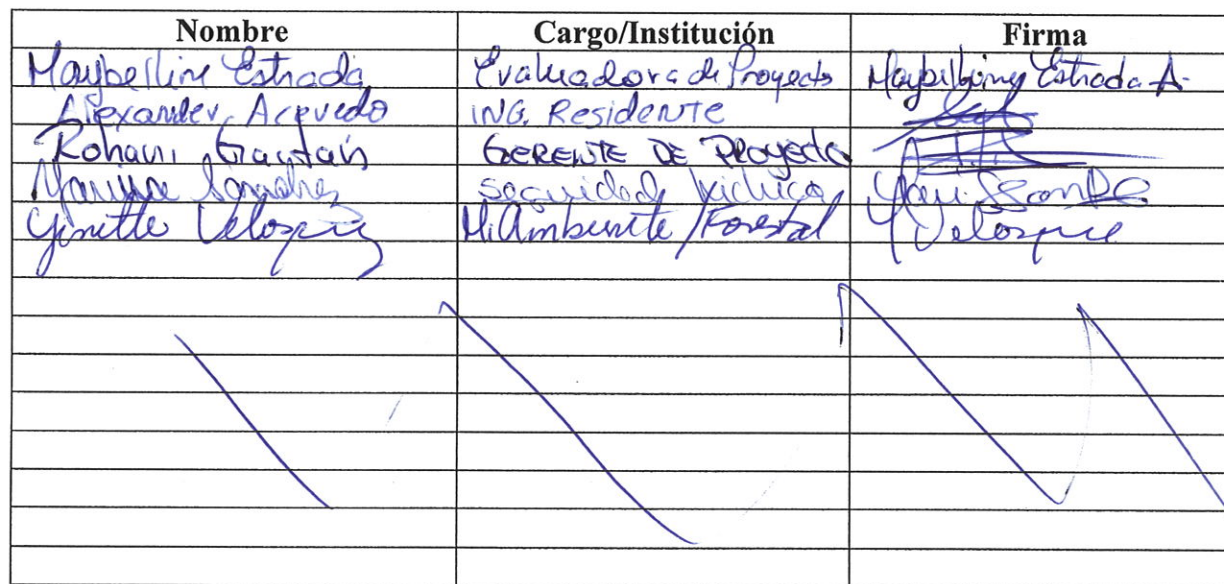 Nombre Cargo/Institución Firma
Maybelline Estrada Evaluadora de Proyecto Maybelline Estrada A.
Alexander Acevedo ING. Residente
Rohani Gaytán GERENTE DE PROYECTO
Seguridad
Ginette Velasquez M.Ambiente/Forestal Velasquez